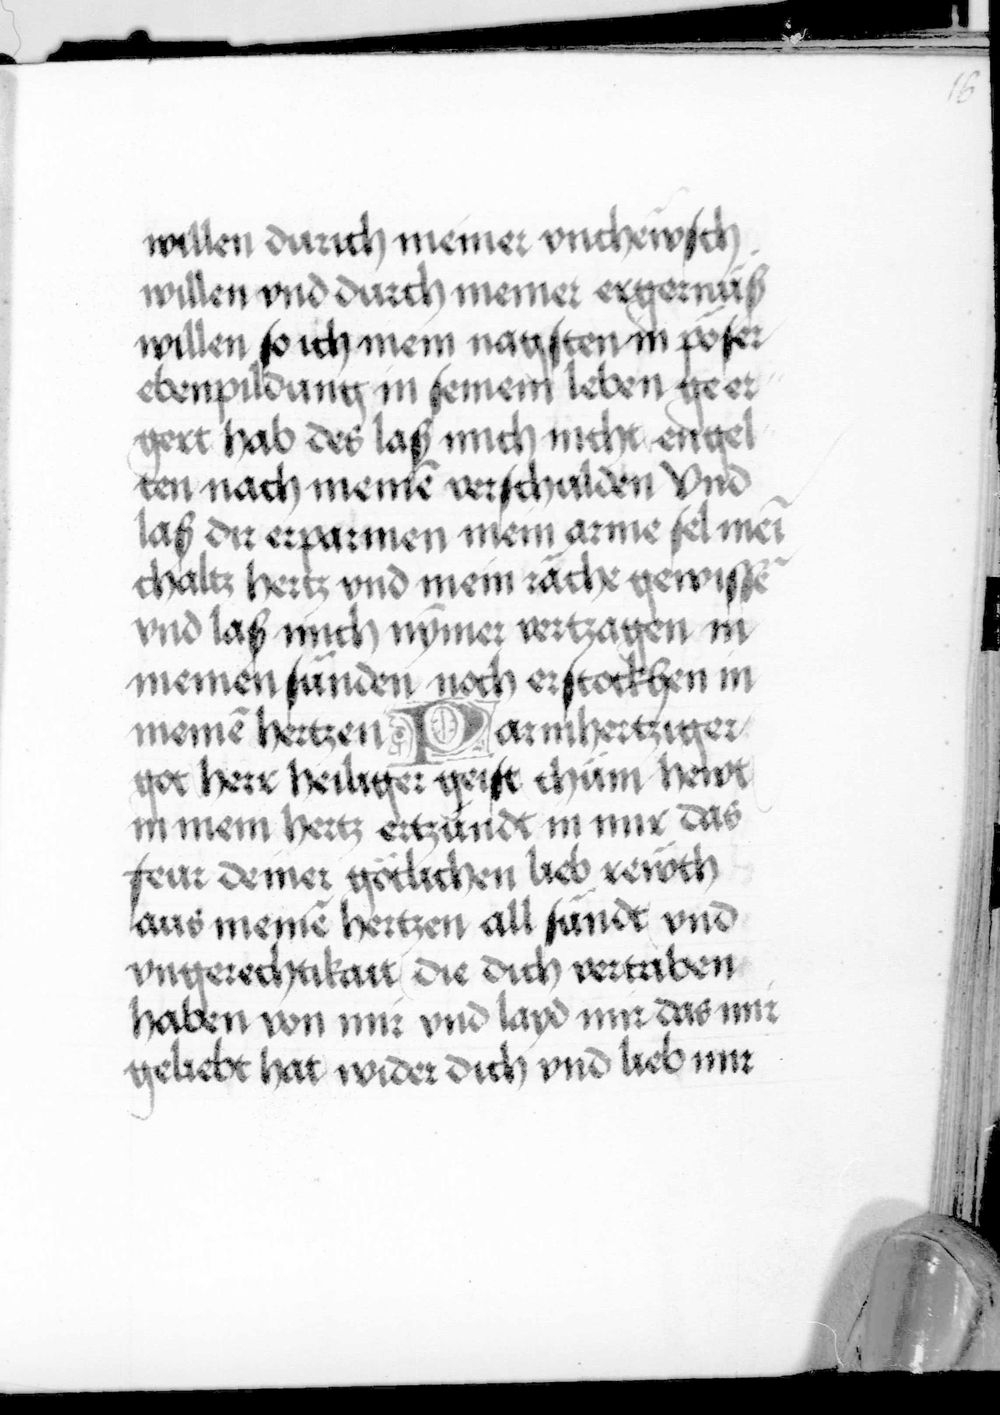 16
willen durich meiner vncheẅsch
willen vnd durch meiner ergernüß
willen so ich mein nagsten in pöser
ebenpildung in seinem leben geer
gert hab des laß mich nicht engel
ten nach meinē verschulden Vnd
laß dir erparmen mein arme sel meī
chaltz hertz vnd mein räche gewissē
vnd laß mich nÿmer vertzagen in
meinen sünden noch erstockhen in
meinē hertzen Parmhertziger
got herr heiliger geist chüm hewt
in mein hertz ertzündt in mir das
feur deiner götlichen lieb rewth
aus meinē hertzen all sündt vnd
vngerechtikait die dich vertriben
haben von mir vnd layd mir das mir
geliebt hat wider dich vnd lieb mir